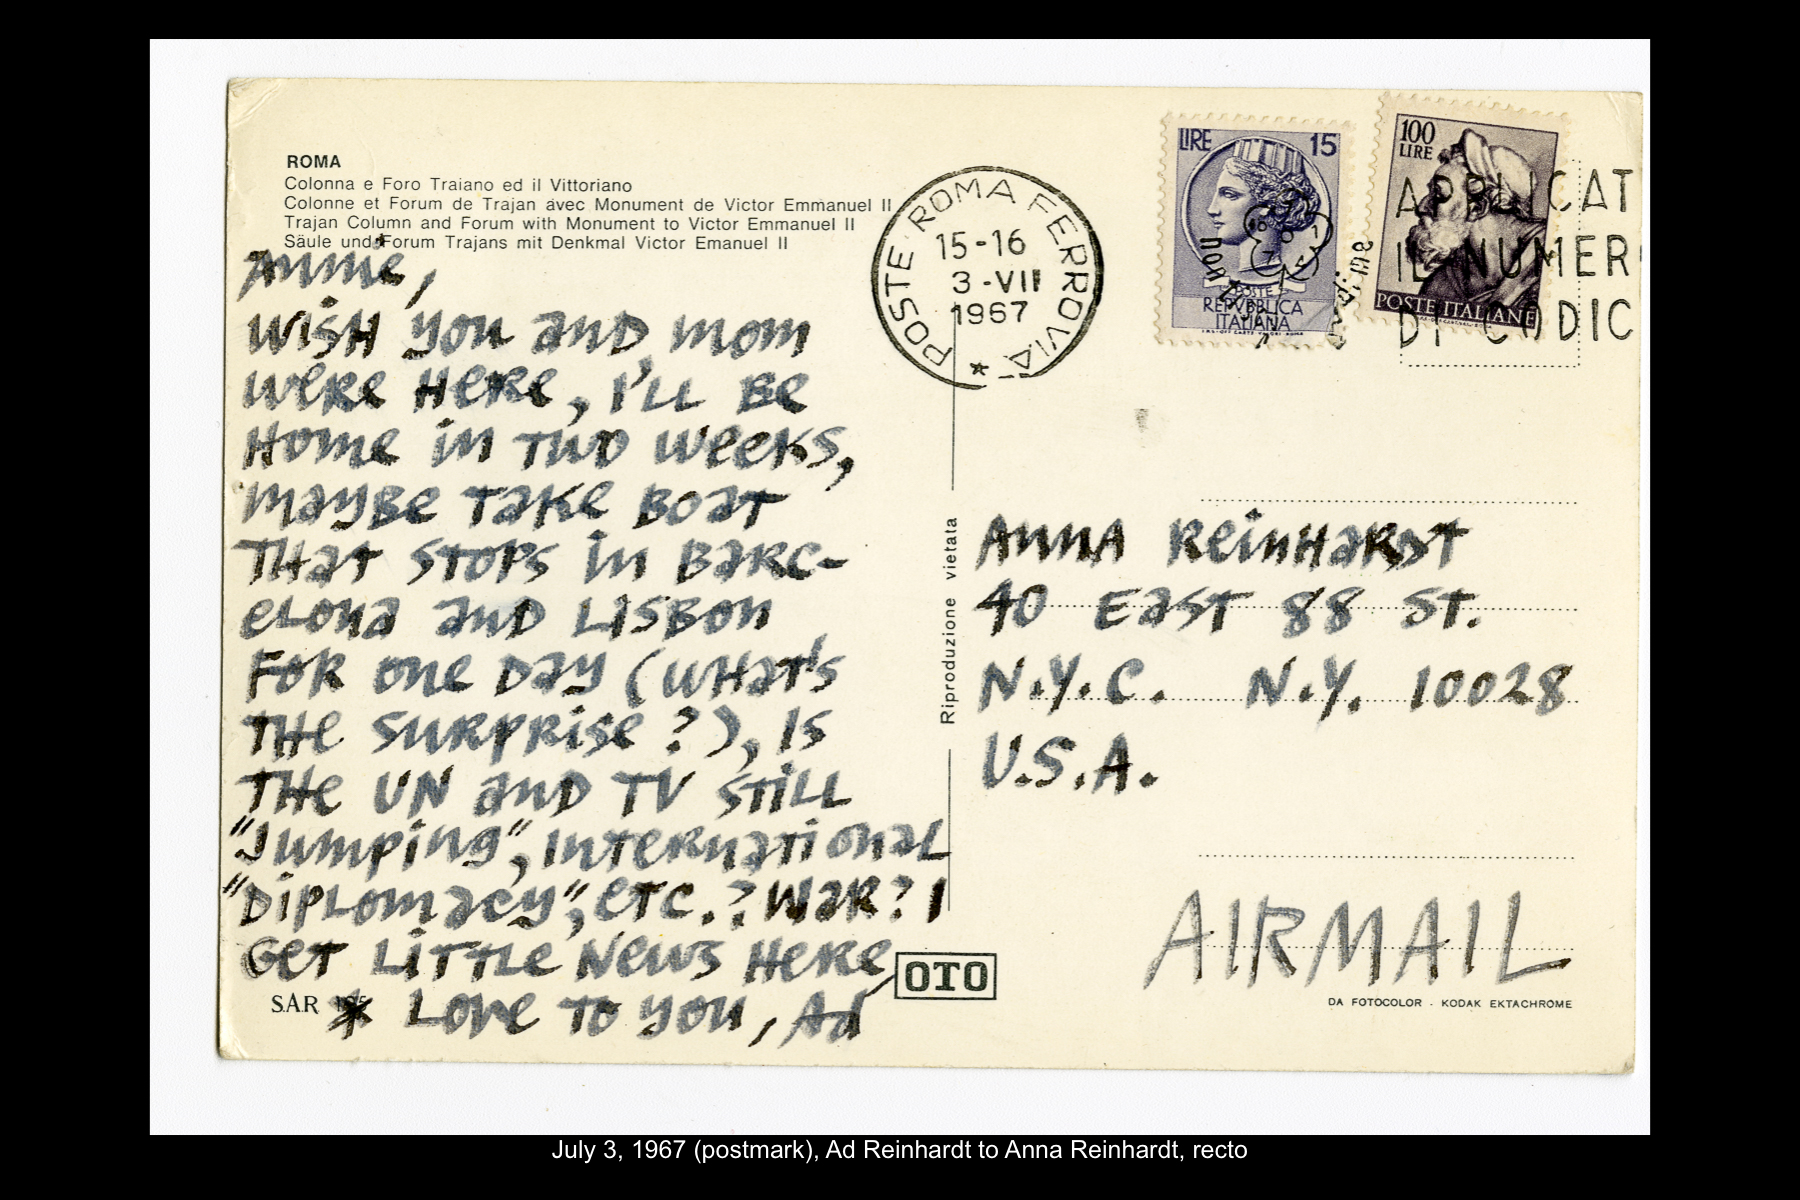 ROMA
Colonna e Foro Traiano ed il Vittoriano
Colonne et Forum de Trajan avec Monument de Victor Emmanuel II
Trajan Column and Forum with Monument to Victor Emmanuel II
Säule und Forum Trajans mit Denkmal Victor Emanuel II
Annie,
WISH you and mom
Were Here, I'LL Be
Home in Two Weeks,
maybe Take Boat
THat stops in Barc-
elona and Lisbon
For one Day (WHat's
THe surprise?), Is
THe UN and TV still
"Jumping", International
"Diplomacy", etc.? War? I
Get Little News Here
* Love To you, Ad
SAR
OTO
POSTE ROMA FERROVIA
15-16
3-VII
1967
LIRE 15
POSTE
REPVBBLICA
ITALIANA
100
LIRE
POSTE ITALIANE
APPLICAT
IL NUMER
DI CODIC
Riproduzione vietata
Anna Reinhardt
40 East 88 St.
N.Y.C. N.Y. 10028
U.S.A.
AIRMAIL
DA FOTOCOLOR - KODAK EKTACHROME
July 3, 1967 (postmark), Ad Reinhardt to Anna Reinhardt, recto